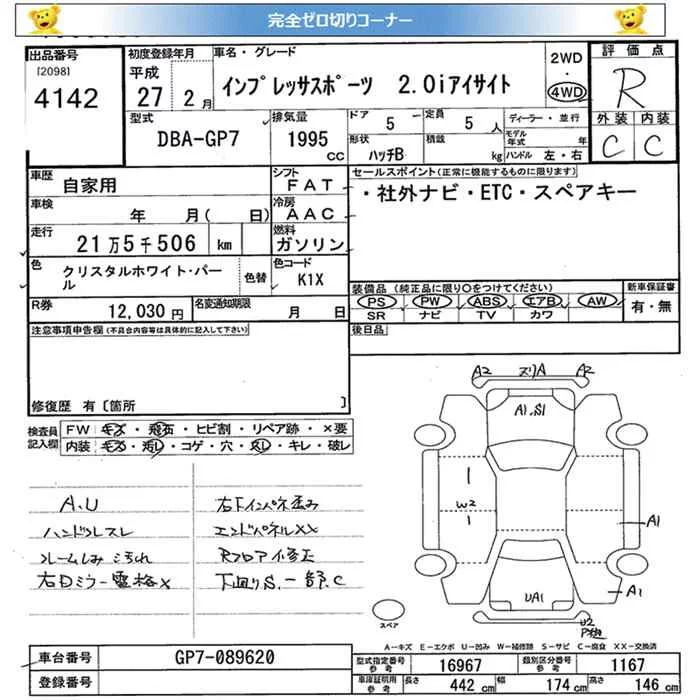 完全ゼロ切りコーナー
出品番号
[2098]
4142
初度登録年月
平成
27 2月
車名・グレード
インプレッサスポーツ 2.0iアイサイト
2WD
・
4WD
評価点
R
外装 内装
C C
型式
DBA-GP7
排気量
1995
cc
ドア
5
形状
ハッチB
定員
5 人
積載
kg
ディーラー・並行
モデル年式
ハンドル 左・右
車歴
自家用
シフト
FAT
車検
年 月( 日)
冷房
AAC
走行
21万5千506 km
燃料
ガソリン
色
クリスタルホワイト・パール
色替
色コード
K1X
R券
12,030円
名変通知期限
月 日
セールスポイント(正常に機能するものに限ります)
・社外ナビ・ETC・スペアキー
装備品(純正品に限り○をつけてください)
PS PW ABS エアB AW
SR ナビ TV カワ
新車保証書
有・無
後日品
注意事項申告欄(不具合内容等は具体的に記入して下さい)
修復歴 有[箇所 ]
検査員記入欄
FW キズ・飛石・ヒビ割・リペア跡・×要
内装 キズ・汚レ・コゲ・穴・灰レ・キレ・破レ
A.U
ハンドルスレ
右下インパネ歪み
エンドパネルXX
Rフロア修正
下回りS.一部.C
A2 スリA A2
A1.S1
W2
A1
A1
UA1
U2
スペア
A-キズ E-エクボ U-凹み W-補修跡 S-サビ C-腐食 XX-交換済
車台番号
GP7-089620
登録番号
型式指定番号
参考
16967
類別区分番号
参考
1167
車庫証明用
参考
長さ 442 cm
幅 174 cm
高さ 146 cm